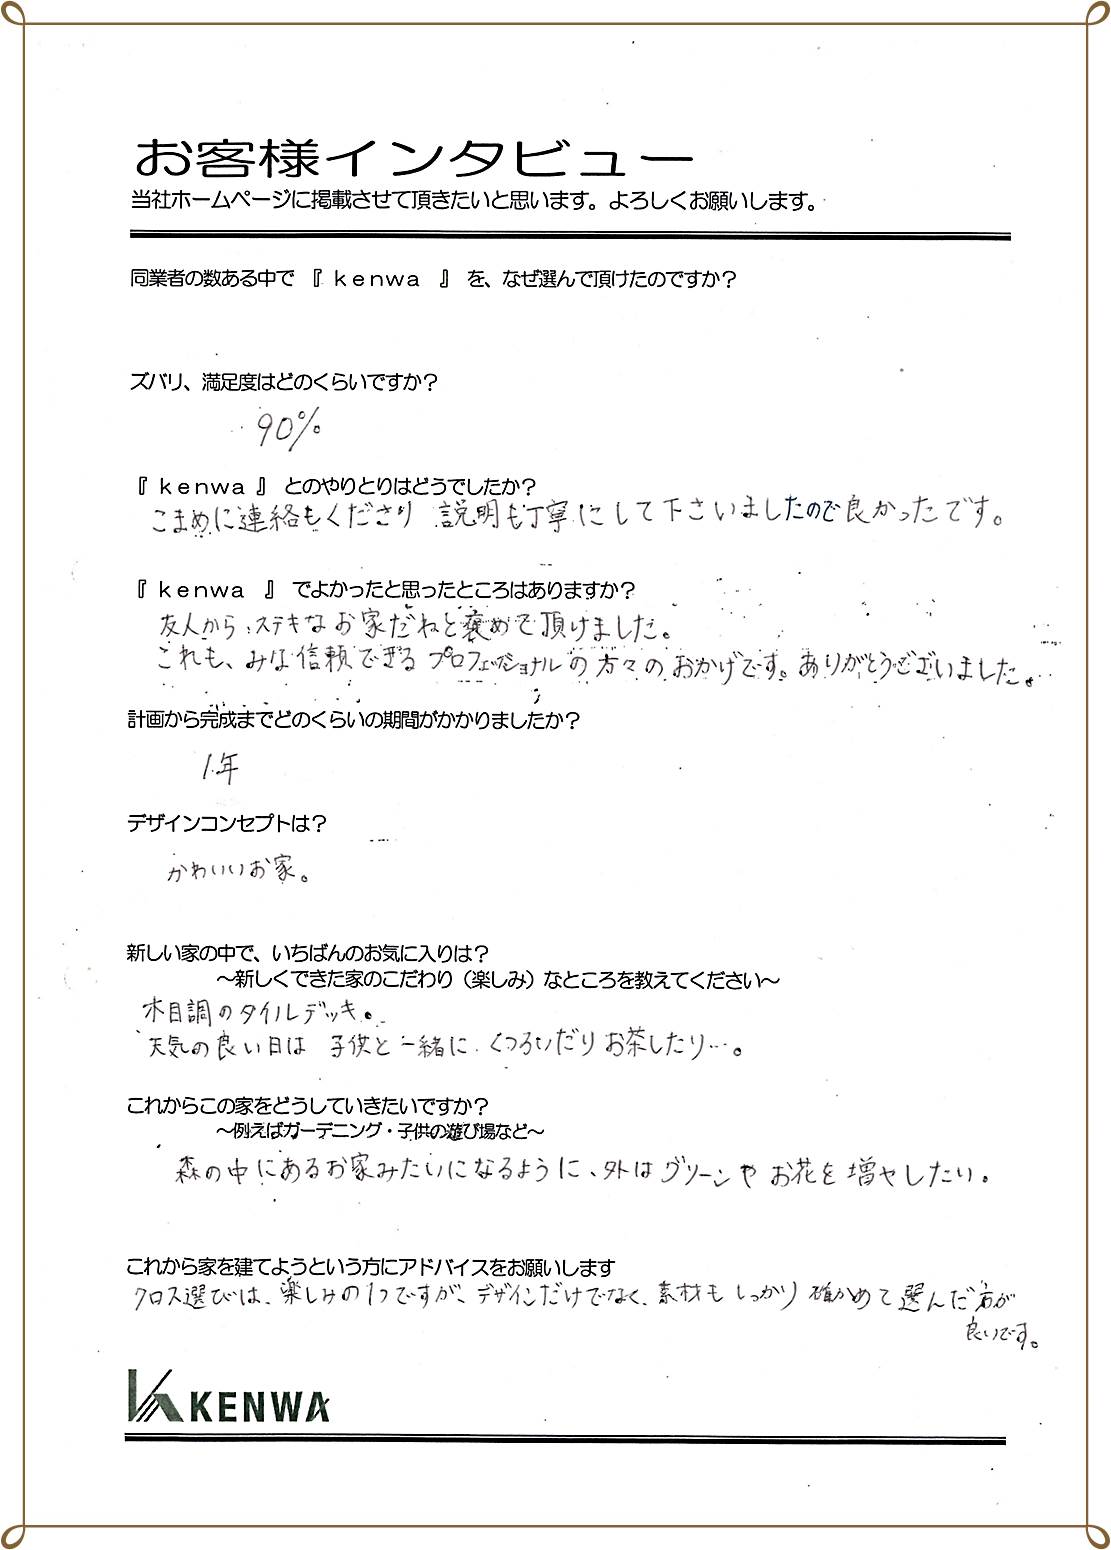 お客様インタビュー
当社ホームページに掲載させて頂きたいと思います。よろしくお願いします。
同業者の数ある中で 『 kenwa 』 を、なぜ選んで頂けたのですか？
ズバリ、満足度はどのくらいですか？
90%
『 kenwa 』 とのやりとりはどうでしたか？
こまめに連絡もくださり 説明も丁寧にして下さいましたので良かったです。
『 kenwa 』 でよかったと思ったところはありますか？
友人から、ステキなお家だねと褒めて頂けました。
これも、みな信頼できるプロフェッショナルの方々のおかげです。ありがとうございました。
計画から完成までどのくらいの期間がかかりましたか？
1年
デザインコンセプトは？
かわいいお家。
新しい家の中で、いちばんのお気に入りは？
～新しくできた家のこだわり（楽しみ）なところを教えてください～
木目調のタイルデッキ。
天気の良い日は 子供と一緒に くつろいだりお茶したり…。
これからこの家をどうしていきたいですか？
～例えばガーデニング・子供の遊び場など～
森の中にあるお家みたいになるように、外はグリーンや お花を増やしたい。
これから家を建てようという方にアドバイスをお願いします
クロス選びは、楽しみの1つですが、デザインだけでなく、素材もしっかり確かめて選んだ方が
良いです。
KENWA